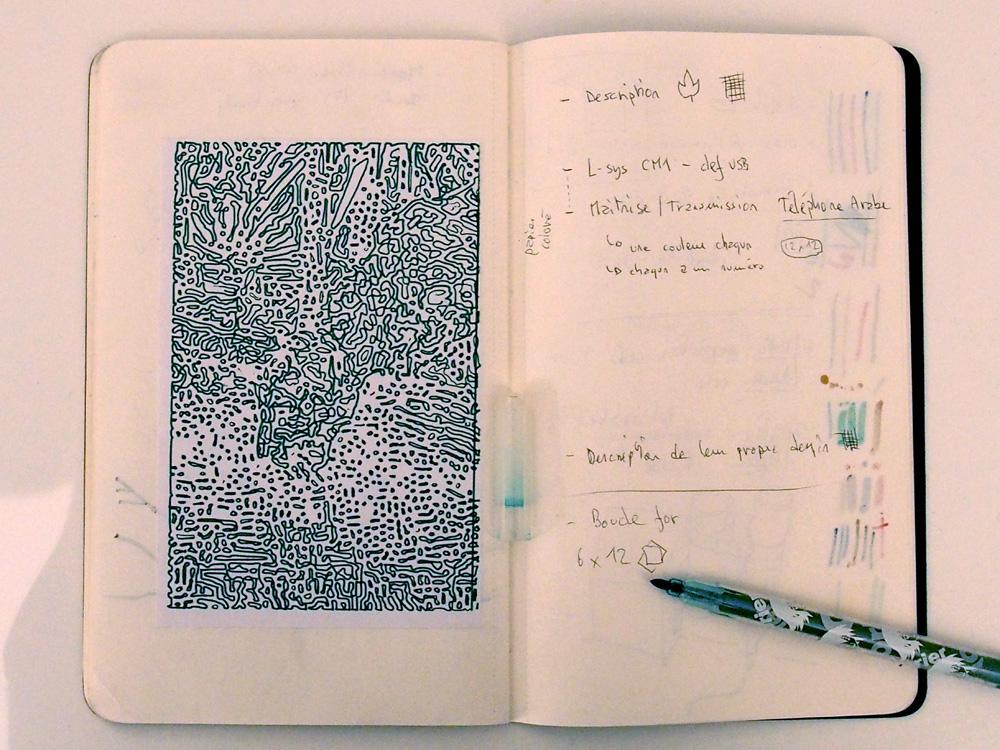 - Description
- L-sys CM1 - def USB
- Maîtrise / Transmission Téléphone Arabe
papier coloré
↳ une couleur chaqun 12x12
↳ chaqun a un numéro
- Description de leur propre dessin
- Boucle for
6 x 12